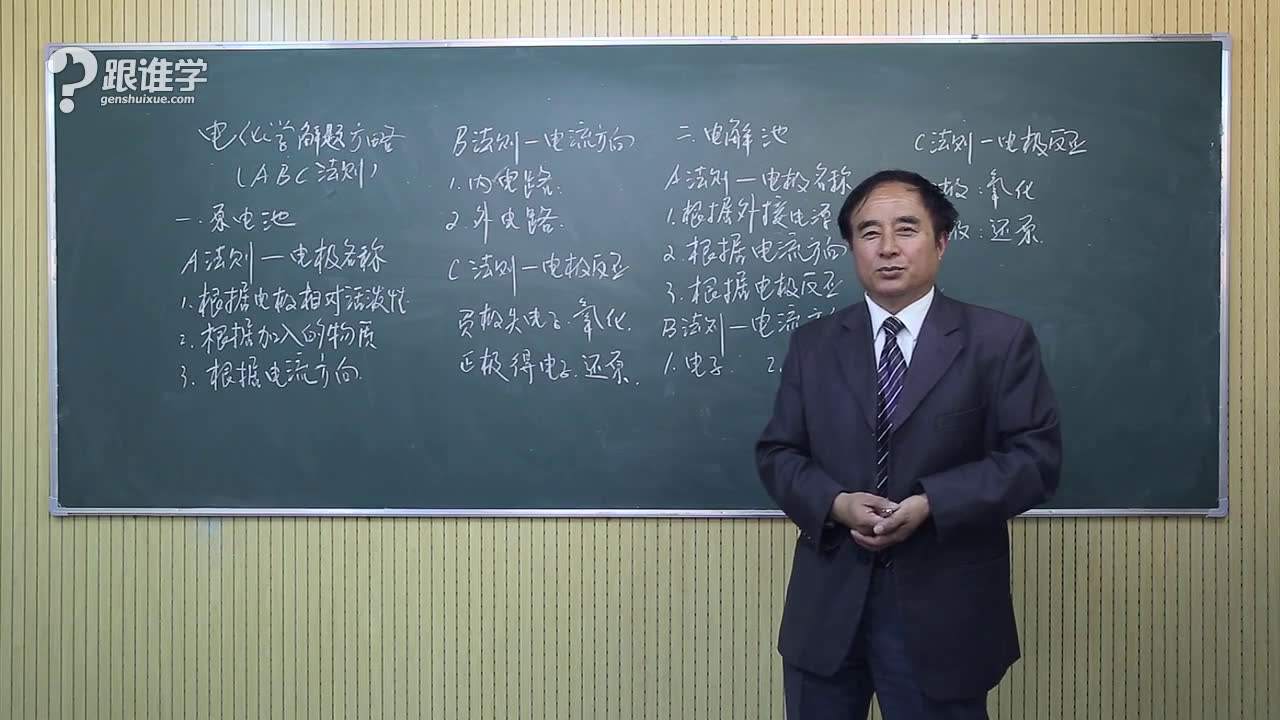 跟谁学
genshuixue.com
电化学解题方略
(ABC法则)
一.原电池
A法则—电极名称
1.根据电极相对活泼性
2.根据加入的物质
3.根据电流方向
B法则—电流方向
1.内电路.
2.外电路.
C法则—电极反应
负极失电子.氧化.
正极得电子.还原.
二.电解池
A法则—电极名称
1.根据外接电源
2.根据电流方向
3.根据电极反应
B法则—电流方
1.电子 2.
C法则—电极反应
极:氧化
极:还原